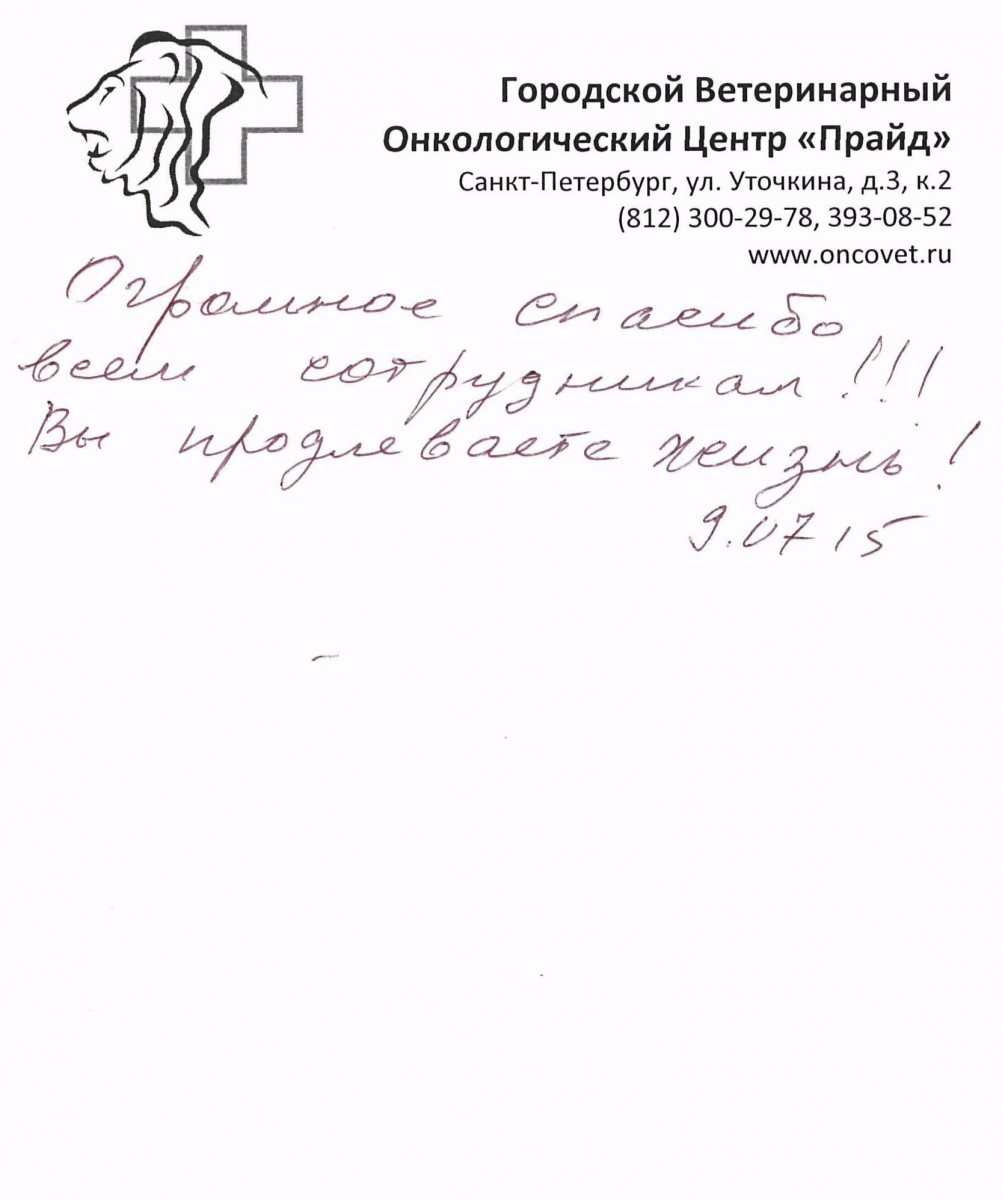 Городской Ветеринарный
Онкологический Центр «Прайд»
Санкт-Петербург, ул. Уточкина, д.3, к.2
(812) 300-29-78, 393-08-52
www.oncovet.ru
Огромное спасибо
всем сотрудникам!!!
Вы продлеваете жизнь!
9.07 15